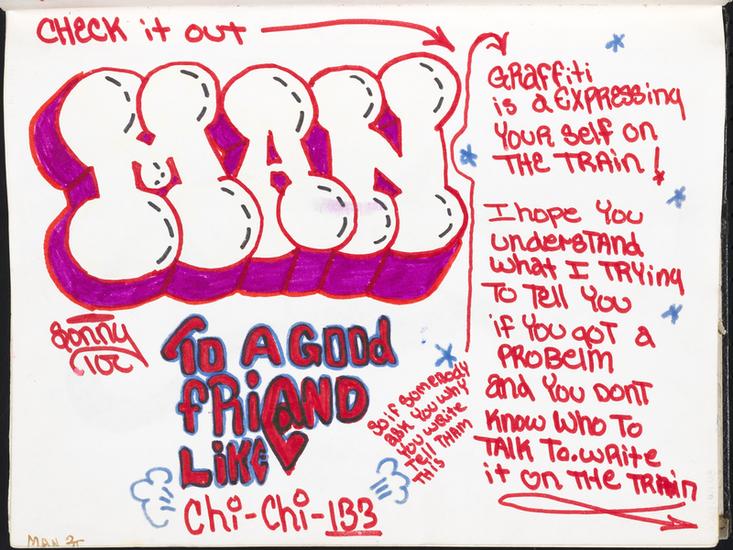 CHECK it out
MAN
Sonny
10c
TO A GOOd
fRiEND
LiKE
Chi-Chi-133
So if SOMEBODY
ASK YOU WHY
YOU WRITE
TEll THAM
THIS
GRAffiti
is a EXPRESSinq
YOUR SElf On
THE TRAin!
I hope YOU
undersTAND
what I TRYinq
TO TEll YOU
if YOU qOT a
PROBElM
and YOU DONT
KNOW WHO TO
TAlK TO. WRiTE
iT ON THE TRAin